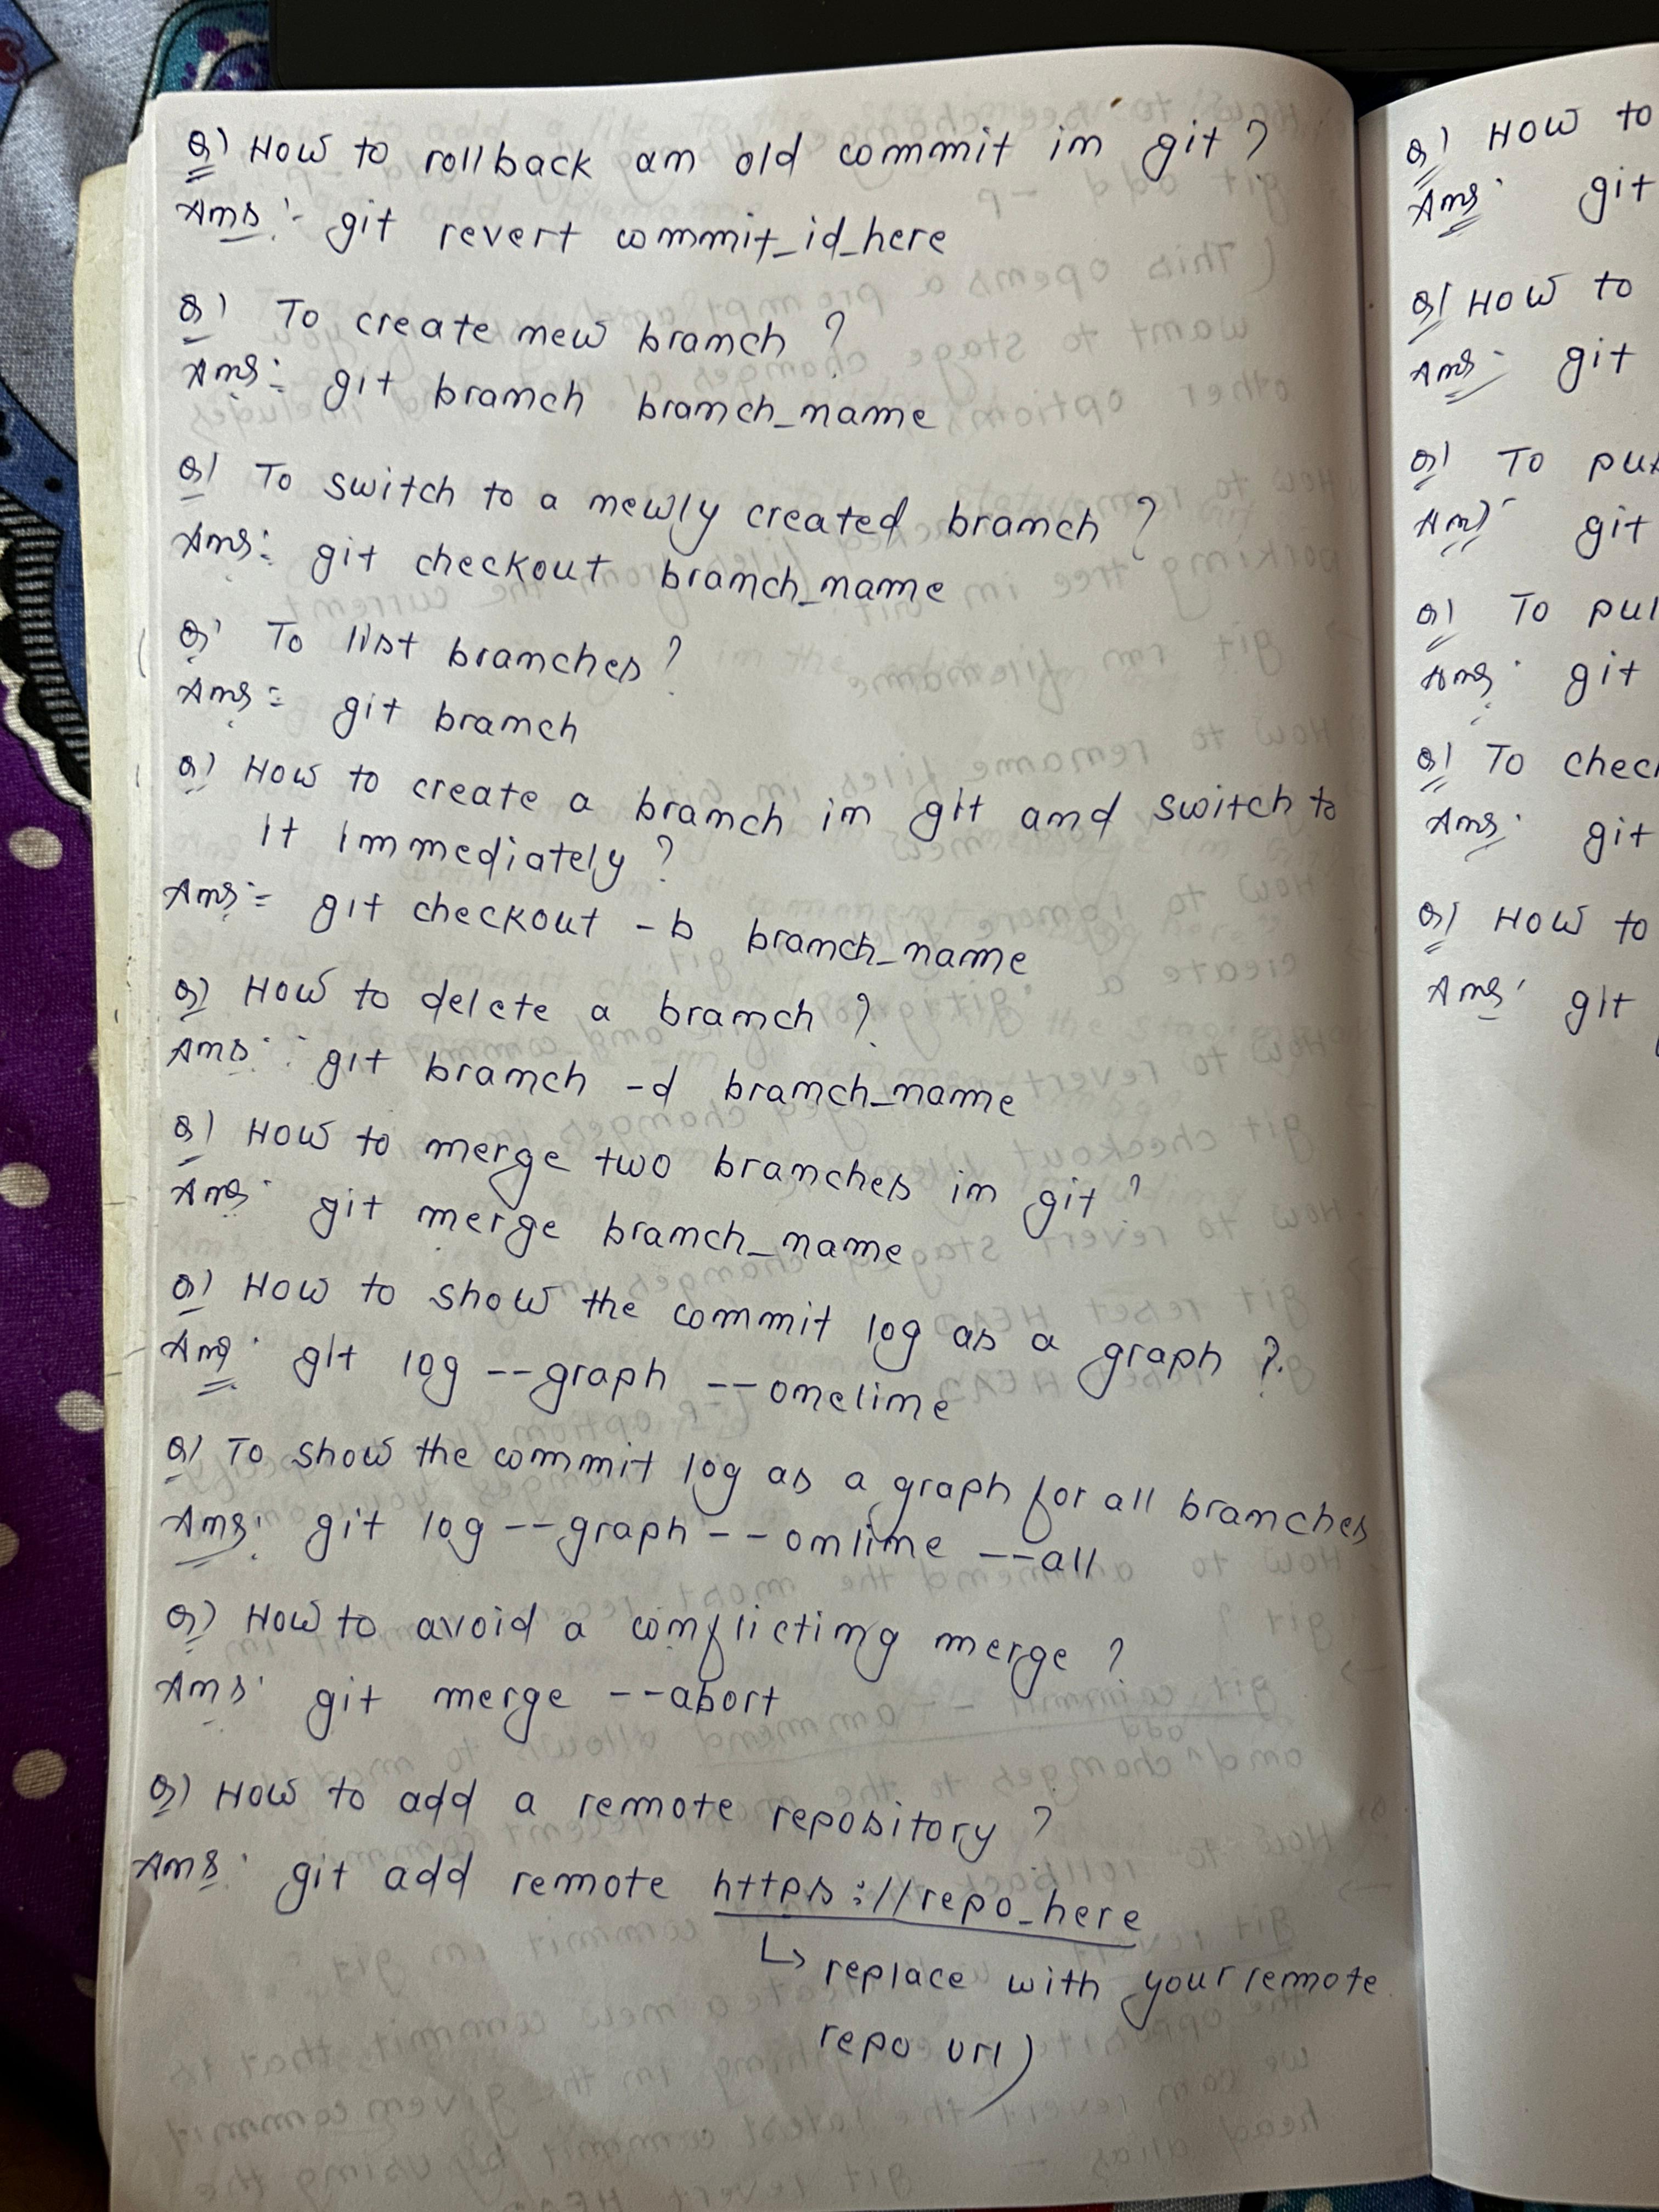 Q) How to rollback an old commit in git ?
Ans :- git revert commit_id_here
Q) To create new branch ?
Ans :- git branch branch_name
Q) To switch to a newly created branch ?
Ans :- git checkout branch_name
Q) To list branches ?
Ans :- git branch
Q) How to create a branch in git and switch to
it immediately ?
Ans :- git checkout -b branch_name
Q) How to delete a branch ?
Ans :- git branch -d branch_name
Q) How to merge two branches in git ?
Ans : git merge branch_name
Q) How to show the commit log as a graph ?
Ans : git log --graph --oneline
Q) To show the commit log as a graph for all branches
Ans : git log --graph --online --all
Q) How to avoid a conflicting merge ?
Ans : git merge --abort
Q) How to add a remote repository ?
Ans : git add remote https://repo_here
↳ replace with your remote
repo url)
Q) How to
Ans : git
Q) How to
Ans :- git
Q) To
Ans : git
Q) To pul
Ans : git
Q) To chec
Ans : git
Q) How to
Ans : git